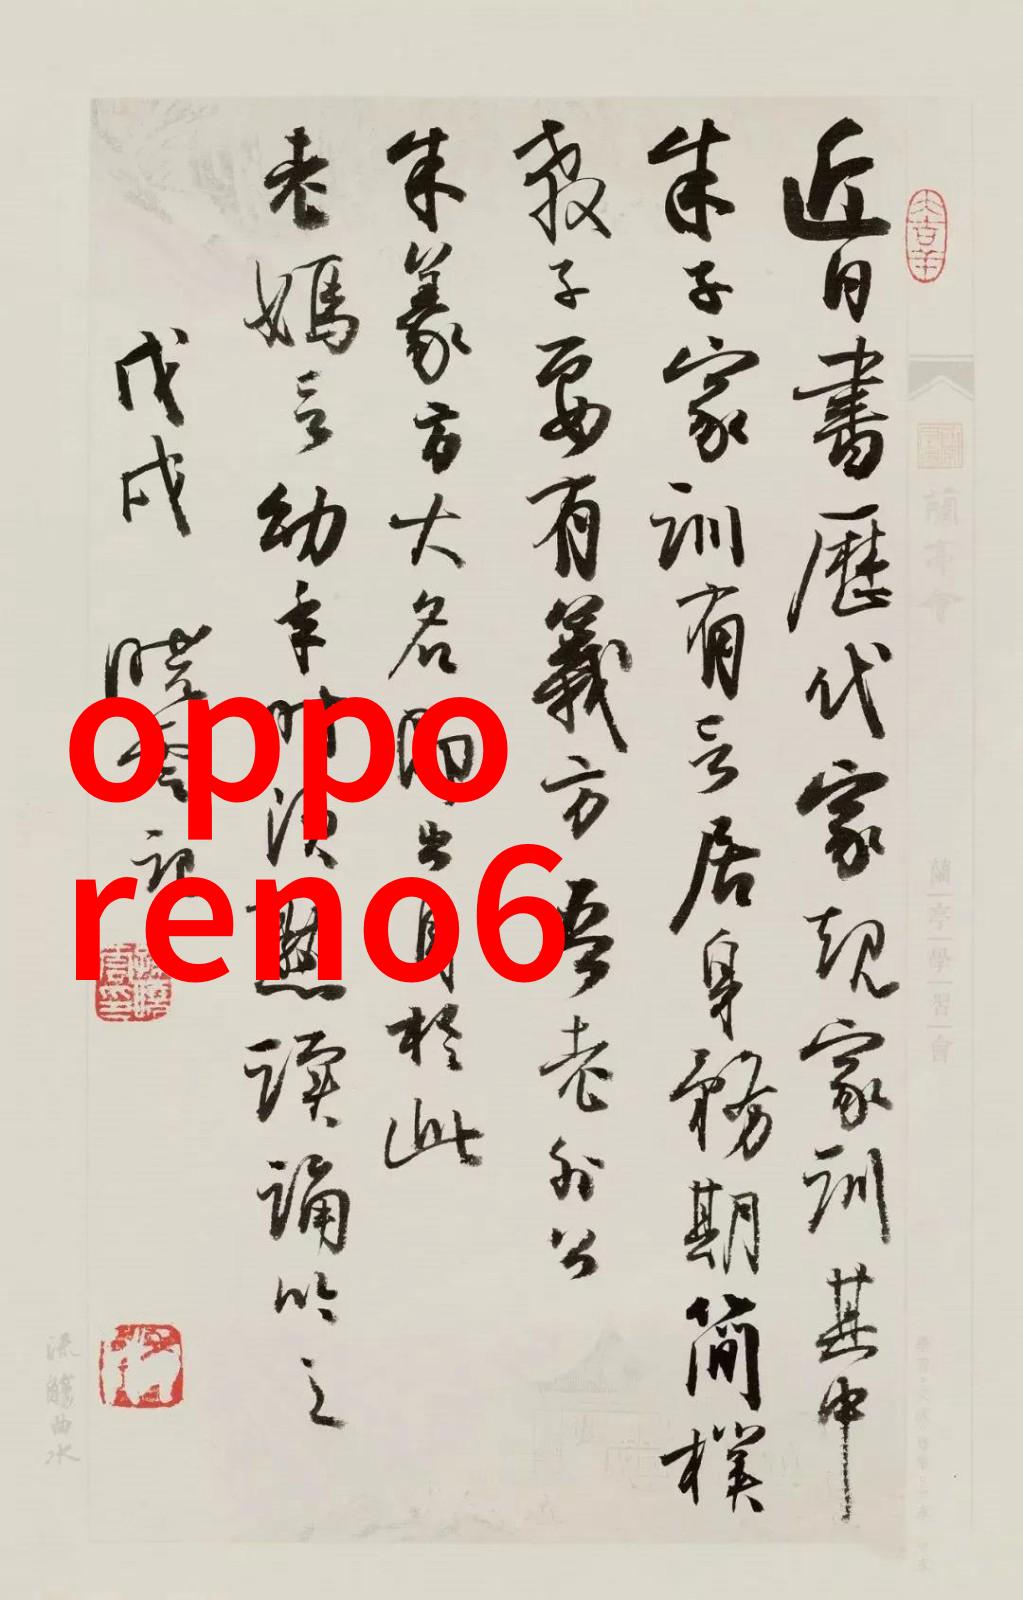 近日書歷代家規家訓其中
朱子家訓有言居身務期簡樸
教子要有義方吾老外公
朱篆方大名出自於此
老媽言幼年時須讀誦吟之
戊戌 曉雲記
oppo
reno6
大吉羊
蘭亭會
蘭亭學習會
流觴曲水